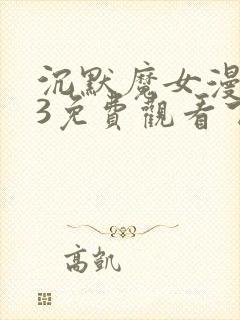 沉默魔女漫
3免費觀看
高凱